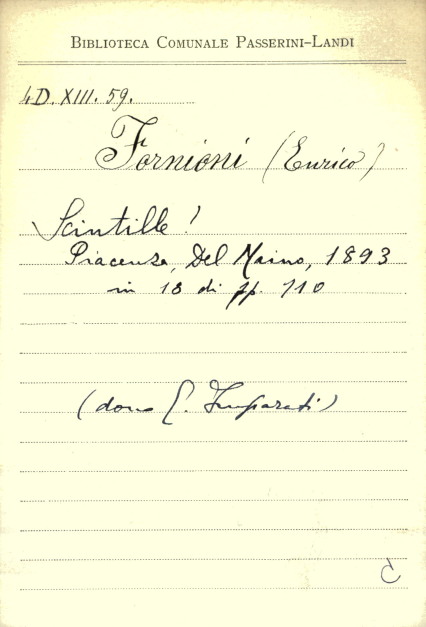 BIBLIOTECA COMUNALE PASSERINI-LANDI
4D. XIII. 59.
Fornioni (Enrico)
Scintille!
Piacenza, Del Maino, 1893
in 18 di pp. 110
(dono E. Imparati)
C